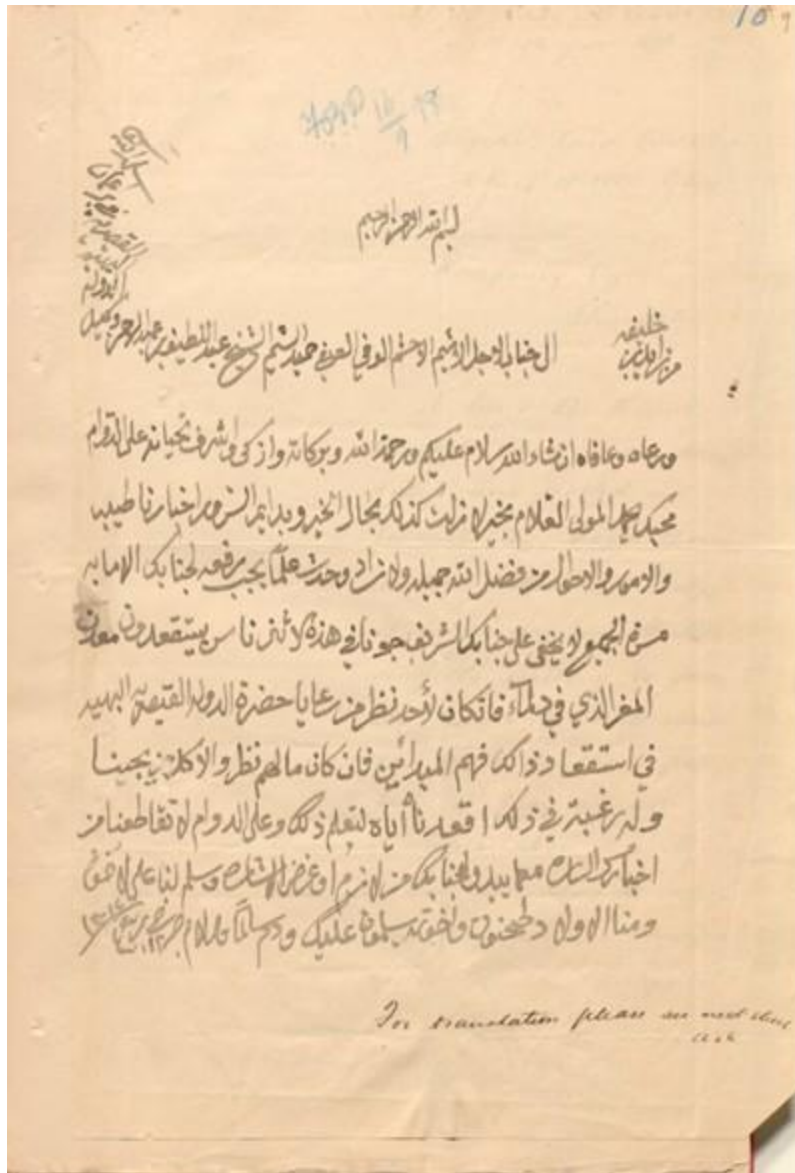 10
16/9 98
بسم الله الرحمن الرحيم
من زايد بن خليفه
الى جناب الاجل الافخم الاحشم الوفي حميد الشيم الشيخ عبد اللطيف بن عبد الرحمن وكيل
الدولة
ورعاه وعافاه ان شاء الله سلام عليكم ورحمة الله وبركاته وازكى واشرف تحياته على الدوام
محبك بحمد المولى العلام بخير لا زلت كذلك بحال الخير وبدايم السرور اخبارنا طيبه
والامور والاحوال من فضل الله جميله ولا زاد وحدث علماً يجب رفعه لجنابك الا ما به
مسرة الجميع لا يخفى على جنابك الشريف جونا في هذه الاثر ناس يستقعدون معدن
المغر الذي في دلماء فان كان لأحد نظر من رعايا حضرة الدولة القيصريه البهيه
في استقعاد ذالك فهم المبدائين فان كان ما لهم نظر والا كلاً يجينا
وله رغبة في ذلك اقعدناه أياه لتعلم ذلك وعلى الدوام لا تقاطعنا من
اخبارك الساره مع ما يبدو لجنابك من لازم او غرض الاشاره وسلم لنا على الاخوه
ومنا الاولاد طحنون واخوته يسلمون عليك ودم سالماً والسلام
For translation please see next sheet